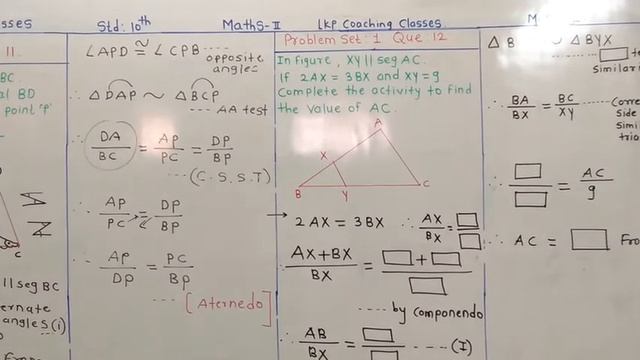 sses
Std: 10th
Maths-II
LKP Coaching Classes
M
11.
BC
al BD
point 'P'
C
|| seg BC
ernate
angles (i)
From
∠APD ≅ ∠CPB ----
opposite
angles
∴ △DAP ~ △BCP
---- AA test
∴ DA/BC = AP/PC = DP/BP
---- (C.S.S.T)
∴ AP/PC = DP/BP
∴ AP/DP = PC/BP
---- [Aternedo]
Problem Set: 1 Que: 12
In figure, XY || seg AC.
If 2AX = 3BX and XY = 9
Complete the activity to find
the value of AC.
A
X
B
Y
C
→ 2AX = 3BX ∴ AX/BX = □/□
AX+BX/BX = □ + □/□
---- by componendo
∴ AB/BX = □/□ ---- (I)
△B ~ △BYX
---- □ te
Similari
∴ BA/BX = BC/XY ---- (corre
side
Simi
tria
∴ □/□ = AC/9
∴ AC = □ Fro